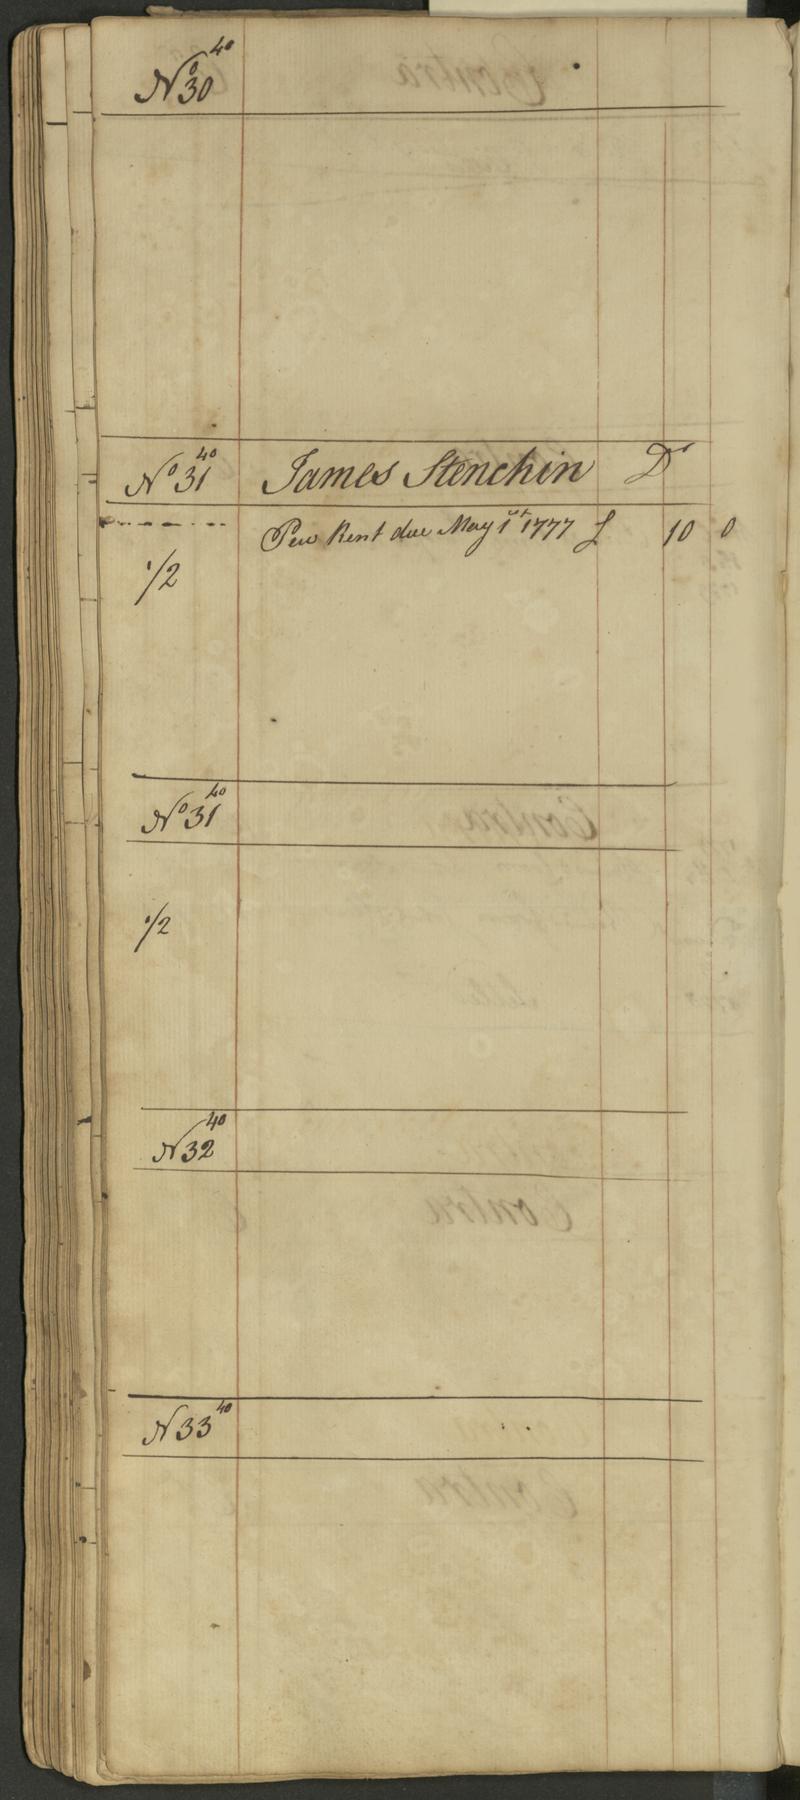 Nº 30 40
Nº 31 40 James Stenchin Dr
Pew Rent due May 1st 1777 £ 10 0
1/2
Nº 31 40
1/2
N 32 40
N 33 40